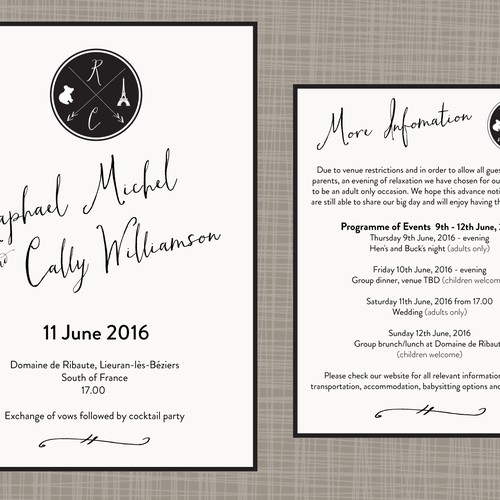 R
C
Raphael Michel
Cally Williamson
11 June 2016
Domaine de Ribaute, Lieuran-lès-Béziers
South of France
17.00
Exchange of vows followed by cocktail party
More Infomation
Due to venue restrictions and in order to allow all
parents, an evening of relaxation we have chosen for
to be an adult only occasion. We hope this advance
are still able to share our big day and will enjoy having
Programme of Events 9th - 12th June,
Thursday 9th June, 2016 - evening
Hen's and Buck's night (adults only)
Friday 10th June, 2016 - evening
Group dinner, venue TBD (children
Saturday 11th June, 2016 from 17.00
Wedding (adults only)
Sunday 12th June, 2016
Group brunch/lunch at Domaine de
(children welcome)
Please check our website for all relevant
transportation, accommodation, babysitting options